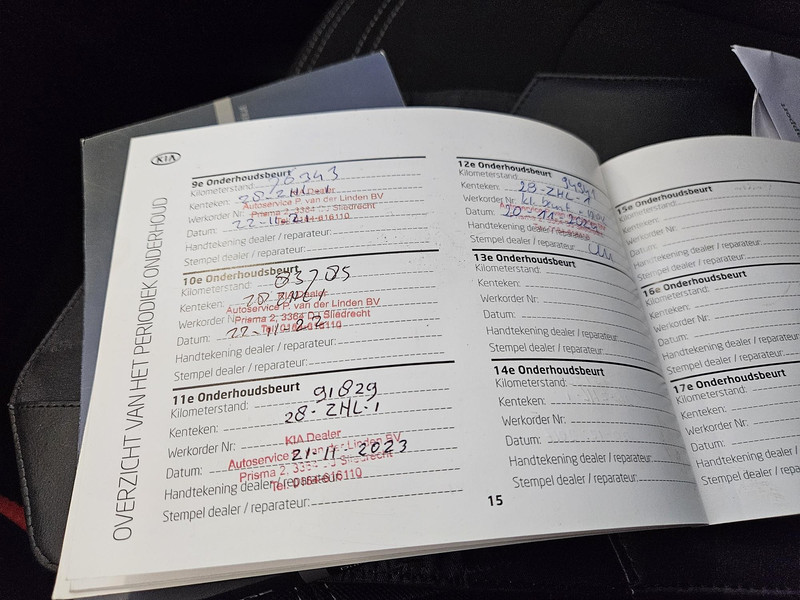 KIA
OVERZICHT VAN HET PERIODIEK ONDERHOUD
9e Onderhoudsbeurt
Kilometerstand:
Kenteken: 28-ZHL-1
KIA Dealer
Werkorder Nr: Autoservice P. van der Linden BV
Prisma 2, 3364 DJ Sliedrecht
Datum: 22-11-21
Tel: 0184-616110
Handtekening dealer / reparateur:
Stempel dealer / reparateur:
10e Onderhoudsbeurt
Kilometerstand: 83705
Kenteken: 28 ZHL 1
KIA Dealer
Autoservice P. van der Linden BV
Werkorder Nr:
Prisma 2, 3364 DJ Sliedrecht
Datum: 22-11-22
Tel: 0184-616110
Handtekening dealer / reparateur:
Stempel dealer / reparateur:
11e Onderhoudsbeurt
Kilometerstand: 91829
Kenteken: 28-ZHL-1
Werkorder Nr:
KIA Dealer
Autoservice P. van der Linden BV
Datum: 21-11-2023
Prisma 2, 3364 DJ Sliedrecht
Tel: 0184-616110
Handtekening dealer / reparateur:
Stempel dealer / reparateur:
12e Onderhoudsbeurt
Kilometerstand:
Kenteken: 28-ZHL-1
Werkorder Nr: kl. beurt
Datum: 20-11-2024
Handtekening dealer / reparateur:
Stempel dealer / reparateur:
13e Onderhoudsbeurt
Kilometerstand:
Kenteken:
Werkorder Nr:
Datum:
Handtekening dealer / reparateur:
Stempel dealer / reparateur:
14e Onderhoudsbeurt
Kilometerstand:
Kenteken:
Werkorder Nr:
Datum:
Handtekening dealer / reparateur:
Stempel dealer / reparateur:
15
15e Onderhoudsbeurt
Kilometerstand:
Kenteken:
Werkorder Nr:
Datum:
Handtekening dealer / reparateur:
Stempel dealer / reparateur:
16e Onderhoudsbeurt
Kilometerstand:
Kenteken:
Werkorder Nr:
Datum:
Handtekening dealer / reparateur:
Stempel dealer / reparateur:
17e Onderhoudsbeurt
Kilometerstand:
Kenteken:
Werkorder Nr:
Datum:
Handtekening dealer
Stempel dealer / repa